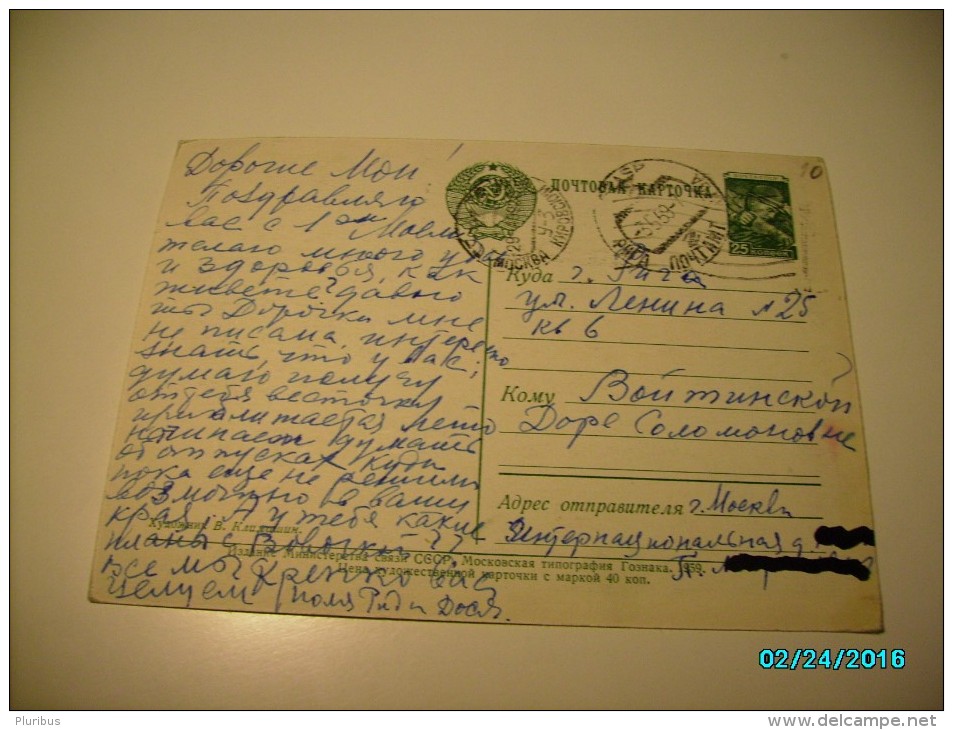 Дорогие Мои!
Поздравляю
вас с 1ым Мая
желаю много
и здоровья, как
живете? давно
Дорочка мне
не писала, интересно
знать, что у вас,
думаю получу
от тебя весточку
приближается лето
начинаем думать
об отпусках куда
пока еще не решили
возможно в ваши
края. А у тебя какие
планы с Вовочкой??
все мы крепко вас
целуем
ПОЧТОВАЯ КАРТОЧКА
МОСКВА
РИГА ПОЧТАМТ
25
10
Куда г. Рига
ул. Ленина № 25
кв 6
Кому Войтинской
Доре Соломоновне
Адрес отправителя г. Москва
Интернациональная д.
Художник В. Климашин.
Издание Министерства связи СССР. Московская типография Гознака. 1959.
Цена художественной карточки с маркой 40 коп.
02/24/2016
Pluribus